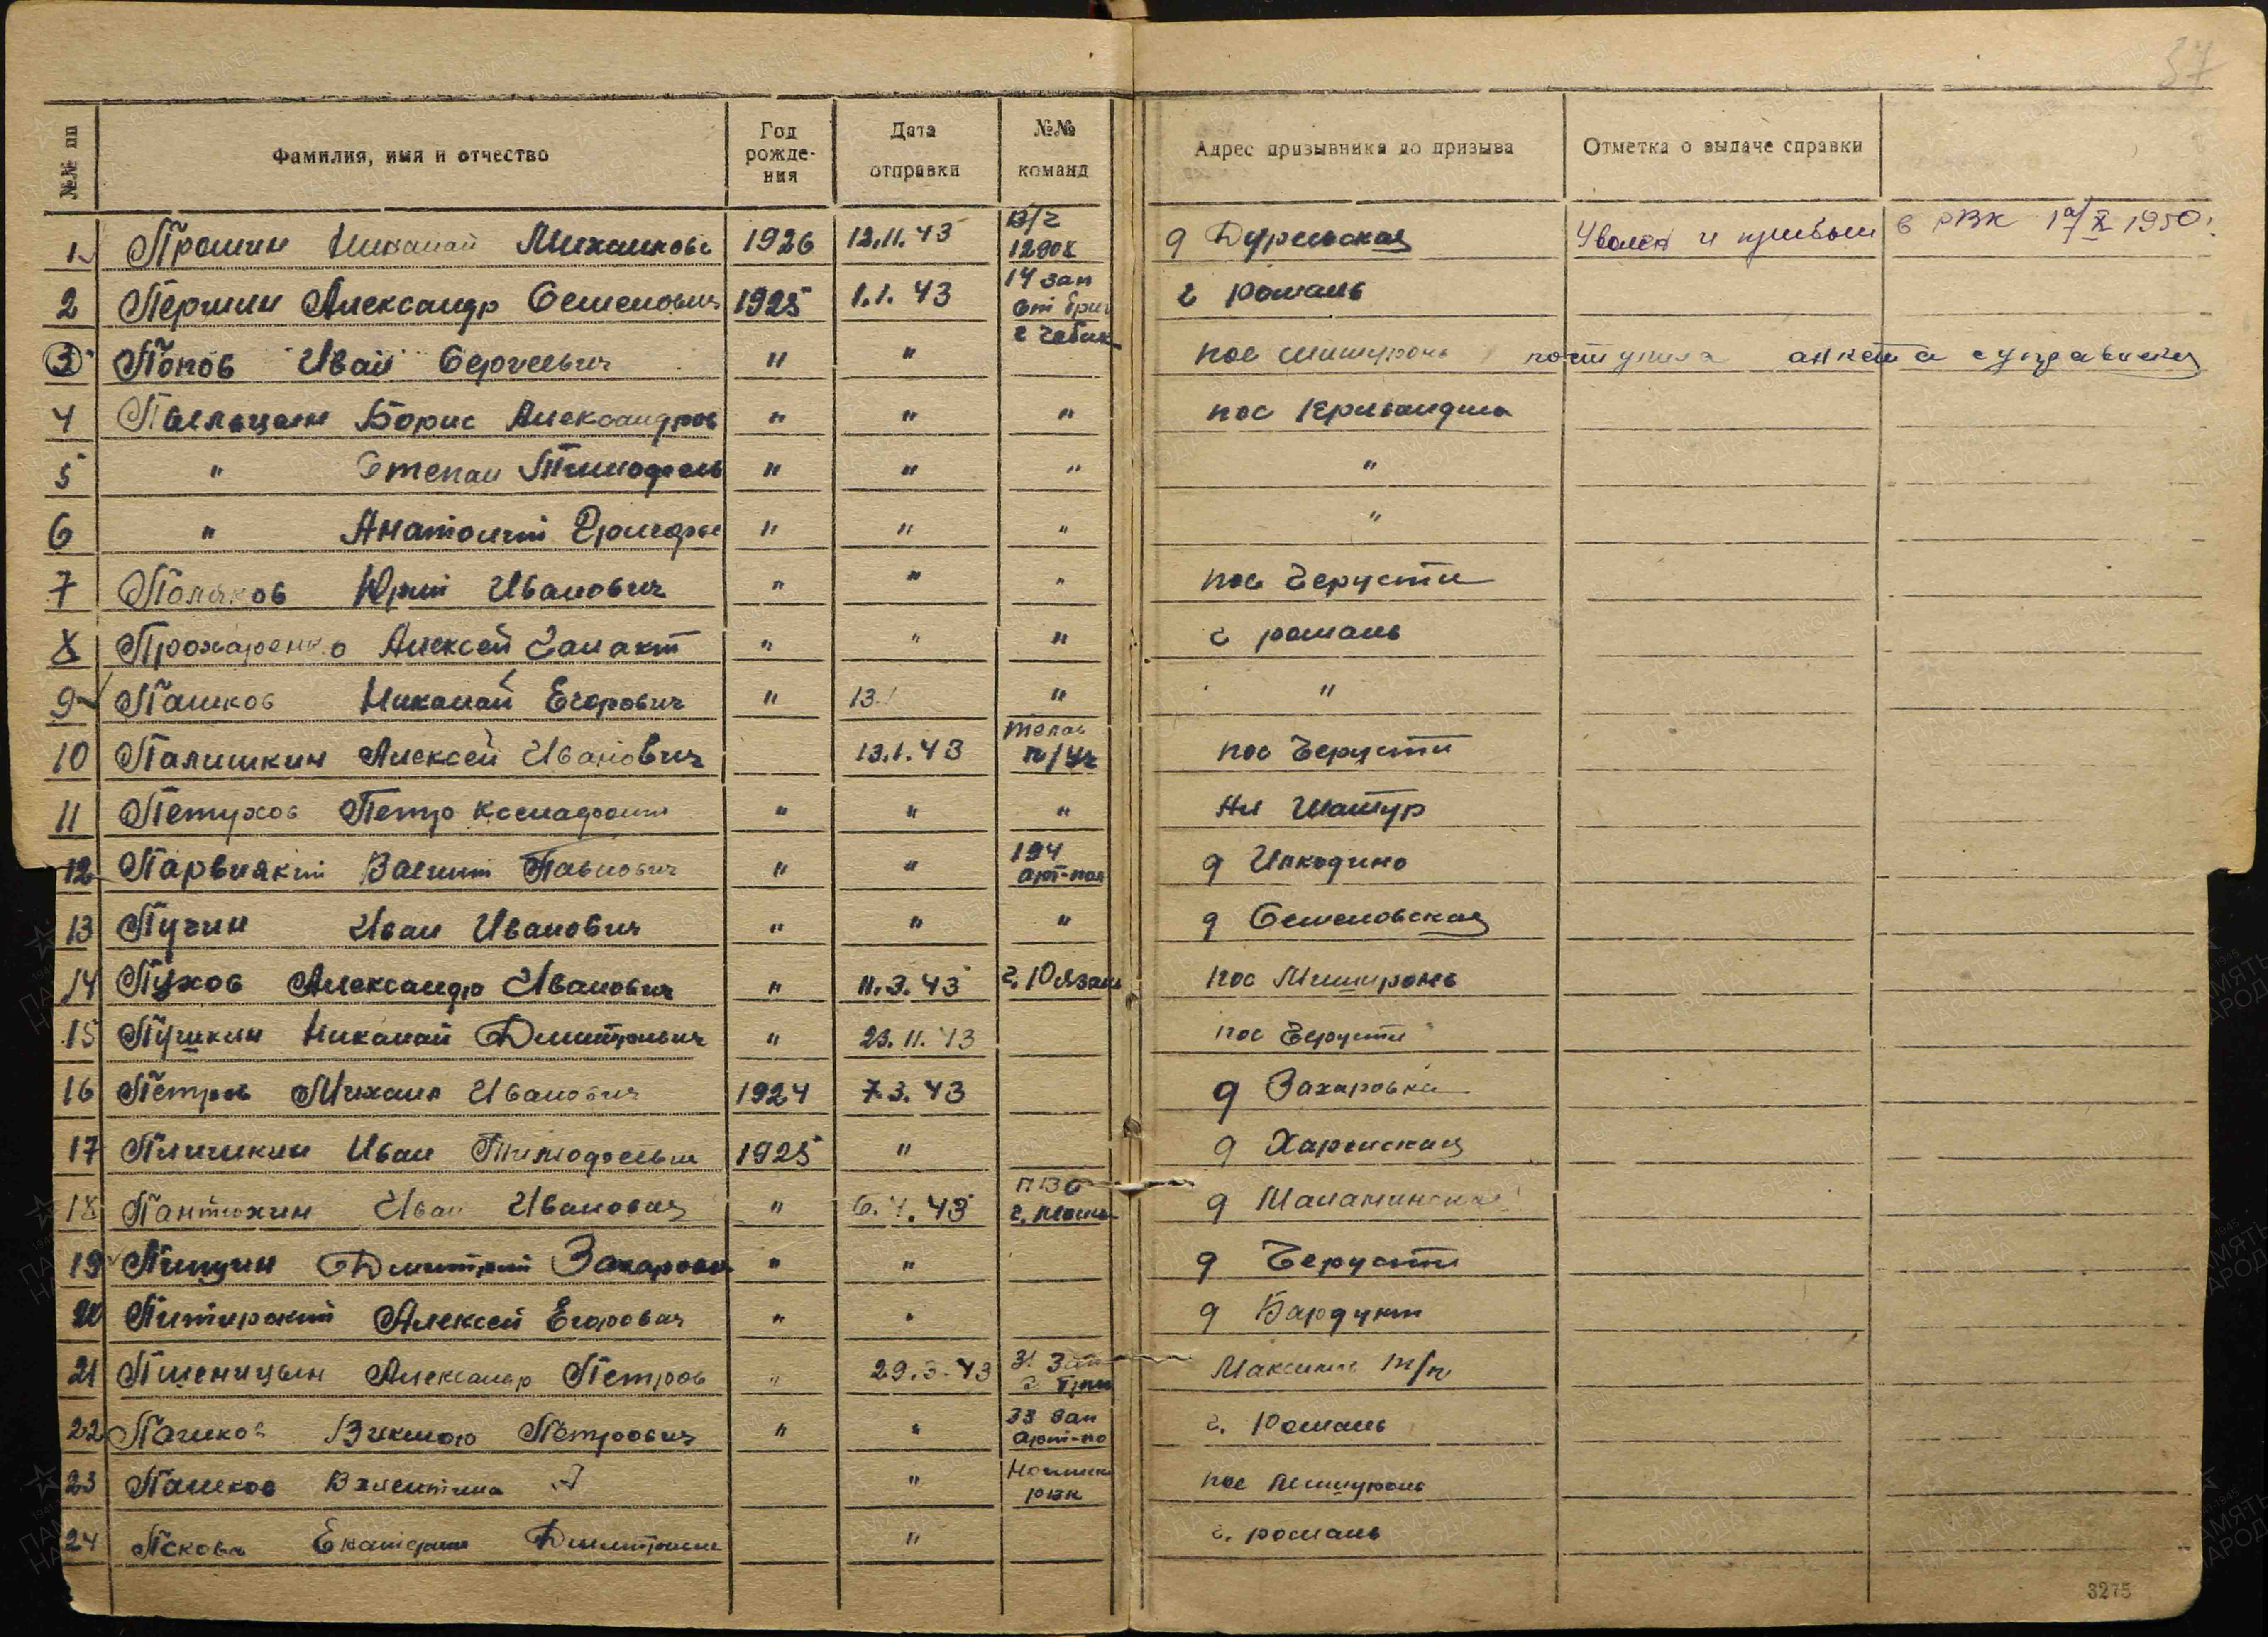 37
№№ пп Фамилия, имя и отчество Год рожде- ния Дата отправки №№ команд Адрес призывника до призыва Отметка о выдаче справки
1 Прошин Николай Михайлови 1926 12.11.43 в/ч 1290х д Дурелевская Уволен и прибыл в РВК 1950г.
2 Першин Александр Семенович 1925 1.1.43 14 зап от бриг г рошаль
3 Попов Иван Сергеевич " " г Чебак пос мишуронь поступила анкета с управления
4 Пальцын Борис Александров " " " пос Кривандина
5 " Степан Тимофеев " " " "
6 " Анатолий Григорье " " " "
7 Поляков Юрий Иванович " " " пос Черусти
8 Прохоренко Алексей Галакт " " " г рошаль
9 Пашков Николай Егорович " 13. " "
10 Палишкин Алексей Иванович 13.1.43 п/уч пос Черусти
11 Петухов Петр Ксенофонт " " " Ал Шатур
12 Парвицкий Василий Павлович " " 194 арт-пол д Илкодино
13 Пучин Иван Иванович " " " д Семеновская
14 Пухов Александр Иванович " 11.3.43 г. Рязань пос Мишуронь
15 Пушкин Николай Дмитриевич " 23.11.43 пос Черусти
16 Петров Михаил Иванович 1924 7.3.43 д Захаровка
17 Пличкин Иван Тимофеевич 1925 " д Харлинская
18 Пантюхин Иван Иванович " 6.1.43 ПВО д Маланинская
19 Пищин Дмитрий Захарови " " д Черусти
20 Питирский Алексей Егорович " " д Бардуки
21 Пшеницын Александр Петров " 29.3.43 31 Зап Максимов т/п
22 Пашков Виктор Петрович " " 33 Зап арт-по г. Рошаль
23 Пашков Валентина " рвк пос мишуронь
24 Пскова Екатерина Дмитриевн " г. рошаль
3275